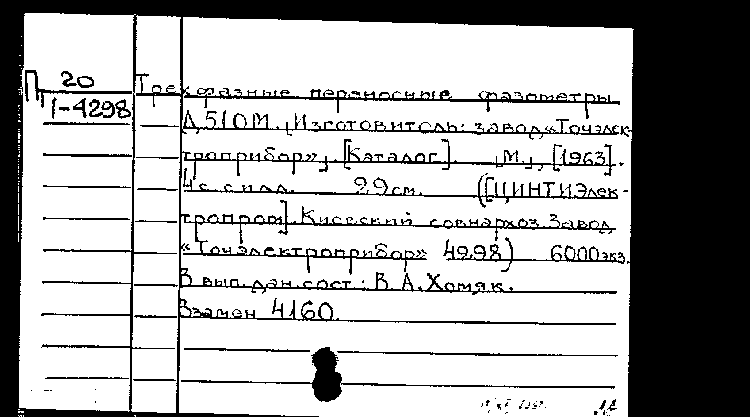 П 20
Т1-4298
Трехфазные переносные фазометры
Д510М. [Изготовитель: завод «Точэлек-
троприбор»]. [Каталог]. [М.], [1963].
4 с. с илл. 29 см. ([ЦИНТИЭлек-
тропром]. Киевский совнархоз. Завод
«Точэлектроприбор» 4298) 6000 экз.
В вып. дан. сост.: В. А. Хомяк.
Взамен 4160.